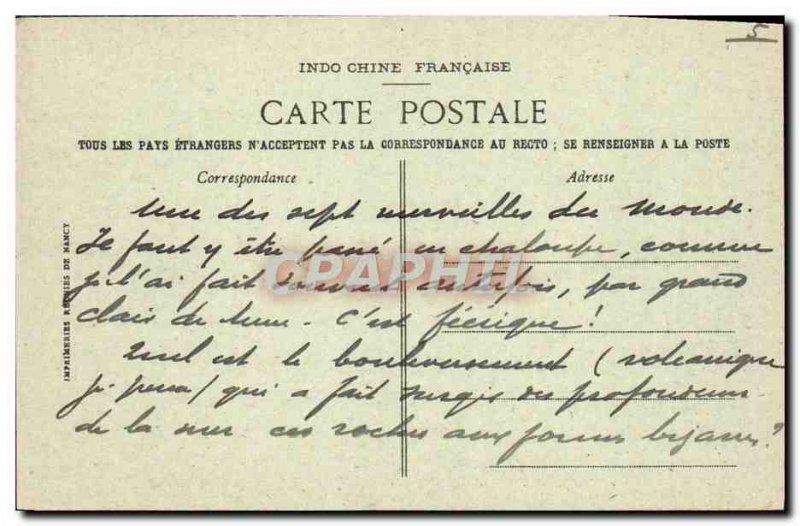 5
INDO CHINE FRANÇAISE
CARTE POSTALE
TOUS LES PAYS ÉTRANGERS N'ACCEPTENT PAS LA CORRESPONDANCE AU RECTO ; SE RENSEIGNER A LA POSTE
Correspondance
Adresse
Une des sept merveilles du monde.
Il faut y être passé en chaloupe, comme
je l'ai fait souvent autrefois, par grand
clair de lune. C'est féerique !
Quel est le bouleversement (volcanique
je pense) qui a fait surgir des profondeurs
de la mer ces roches aux formes bizarres ?
IMPRIMERIES RÉUNIES DE NANCY
CPAPHIL